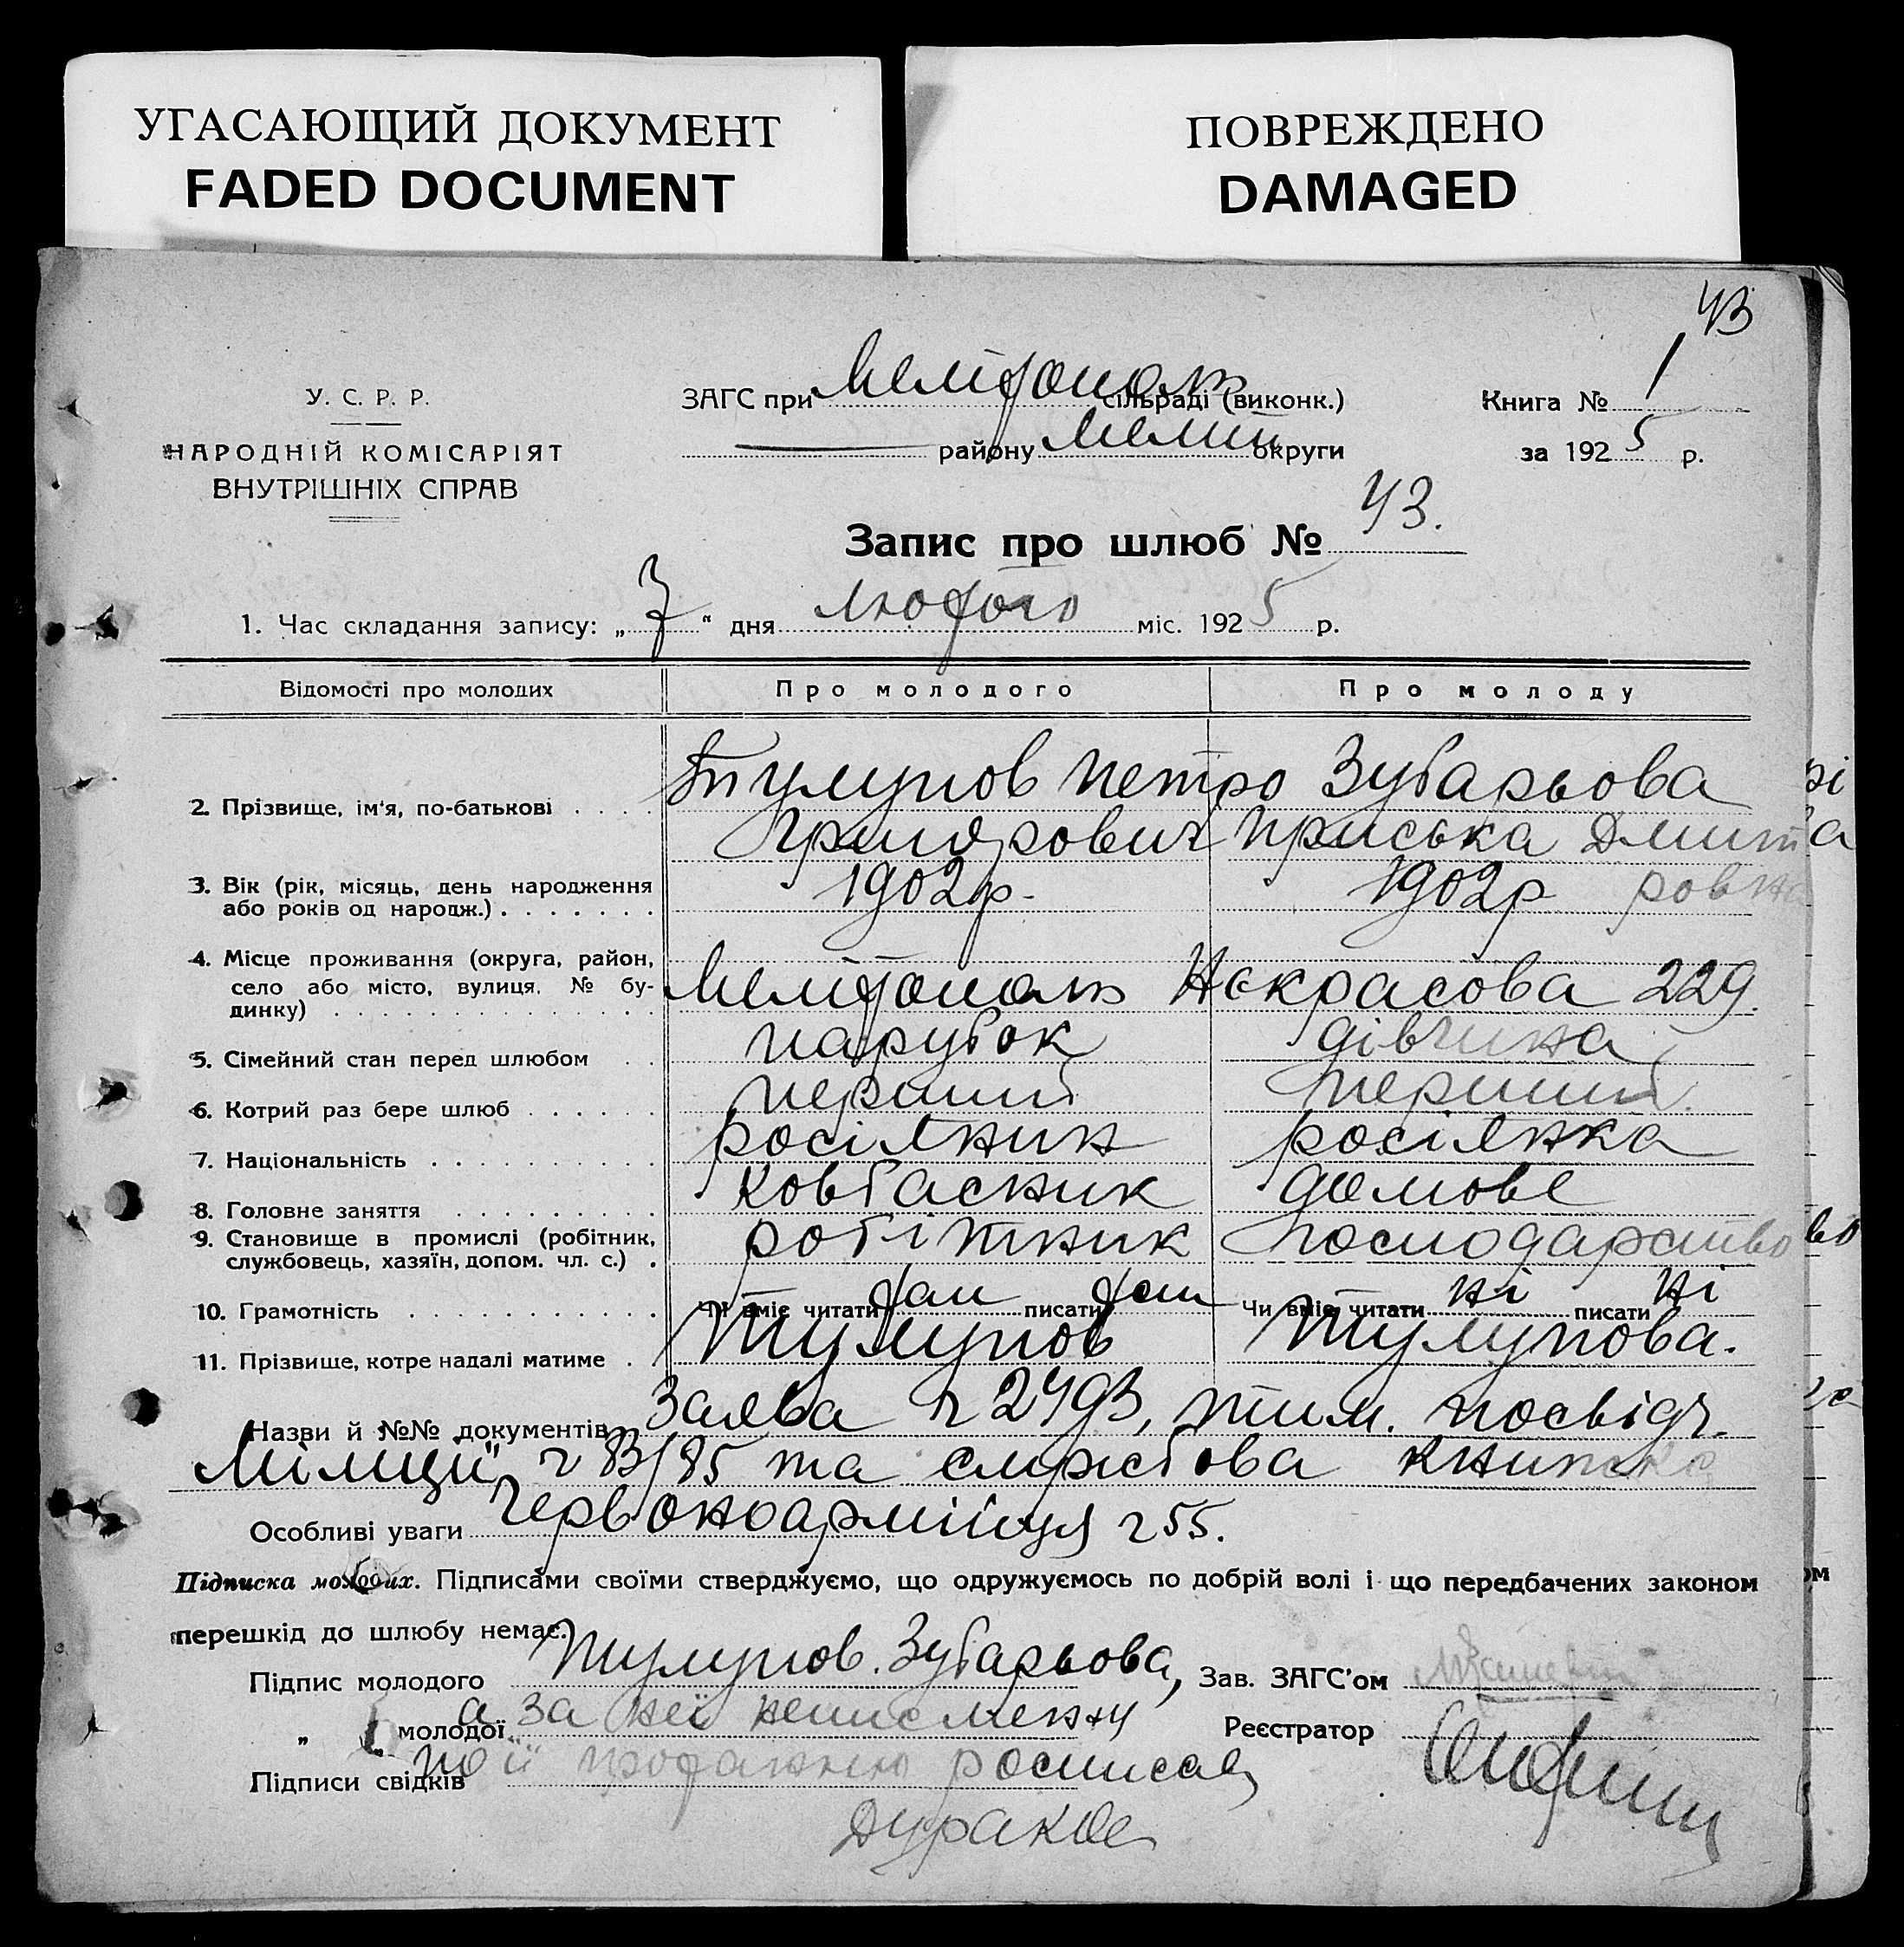 УГАСАЮЩИЙ ДОКУМЕНТ
FADED DOCUMENT
ПОВРЕЖДЕНО
DAMAGED
43
У. С. Р. Р.
НАРОДНІЙ КОМІСАРІЯТ
ВНУТРІШНІХ СПРАВ
ЗАГС при Мелітополь сільраді (виконк.)
району Меліт округи
Книга № 1
за 1925 р.
Запис про шлюб № 43.
1. Час складання запису: „ 7 “ дня лютого міс. 1925 р.
Відомості про молодих Про молодого Про молоду
2. Прізвище, ім'я, по-батькові . . . . Тулупов Петро Зубарьова
Григорович Приська Дмит
3. Вік (рік, місяць, день народження 1902р. 1902р ровна
або років од народж.) . . . . . . .
4. Місце проживання (округа, район,
село або місто, вулиця, № бу- Мелітополь Некрасова 229.
динку) . . . . . . . . . . . . . .
5. Сімейний стан перед шлюбом . . парубок дівчина
6. Котрий раз бере шлюб . . . . . . перший перший
7. Національність . . . . . . . . . . росіянин росіянка
8. Головне заняття . . . . . . . . . ковбасник домове
9. Становище в промислі (робітник, робітник господарство
службовець, хазяїн, допом. чл. с.) .
10. Грамотність . . . . . . . . . . . Чи вміє читати так писати так Чи вміє читати ні писати ні
11. Прізвище, котре надалі матиме . Тулупов Тулупова.
Назви й №№ документів Заява ч 2493, тим. посвідч.
Міліції ч 83/85 та службова книжка
Особливі уваги Червоноармійця ч 55.
Підписка молодих. Підписами своїми стверджуємо, що одружуємось по добрій волі і що передбачених законом
перешкід до шлюбу немає.
Підпис молодого Тулупов. Зубарьова, Зав. ЗАГС'ом
„ молодої а за неї неписменну Реєстратор
Підписи свідків по її проханню росписав